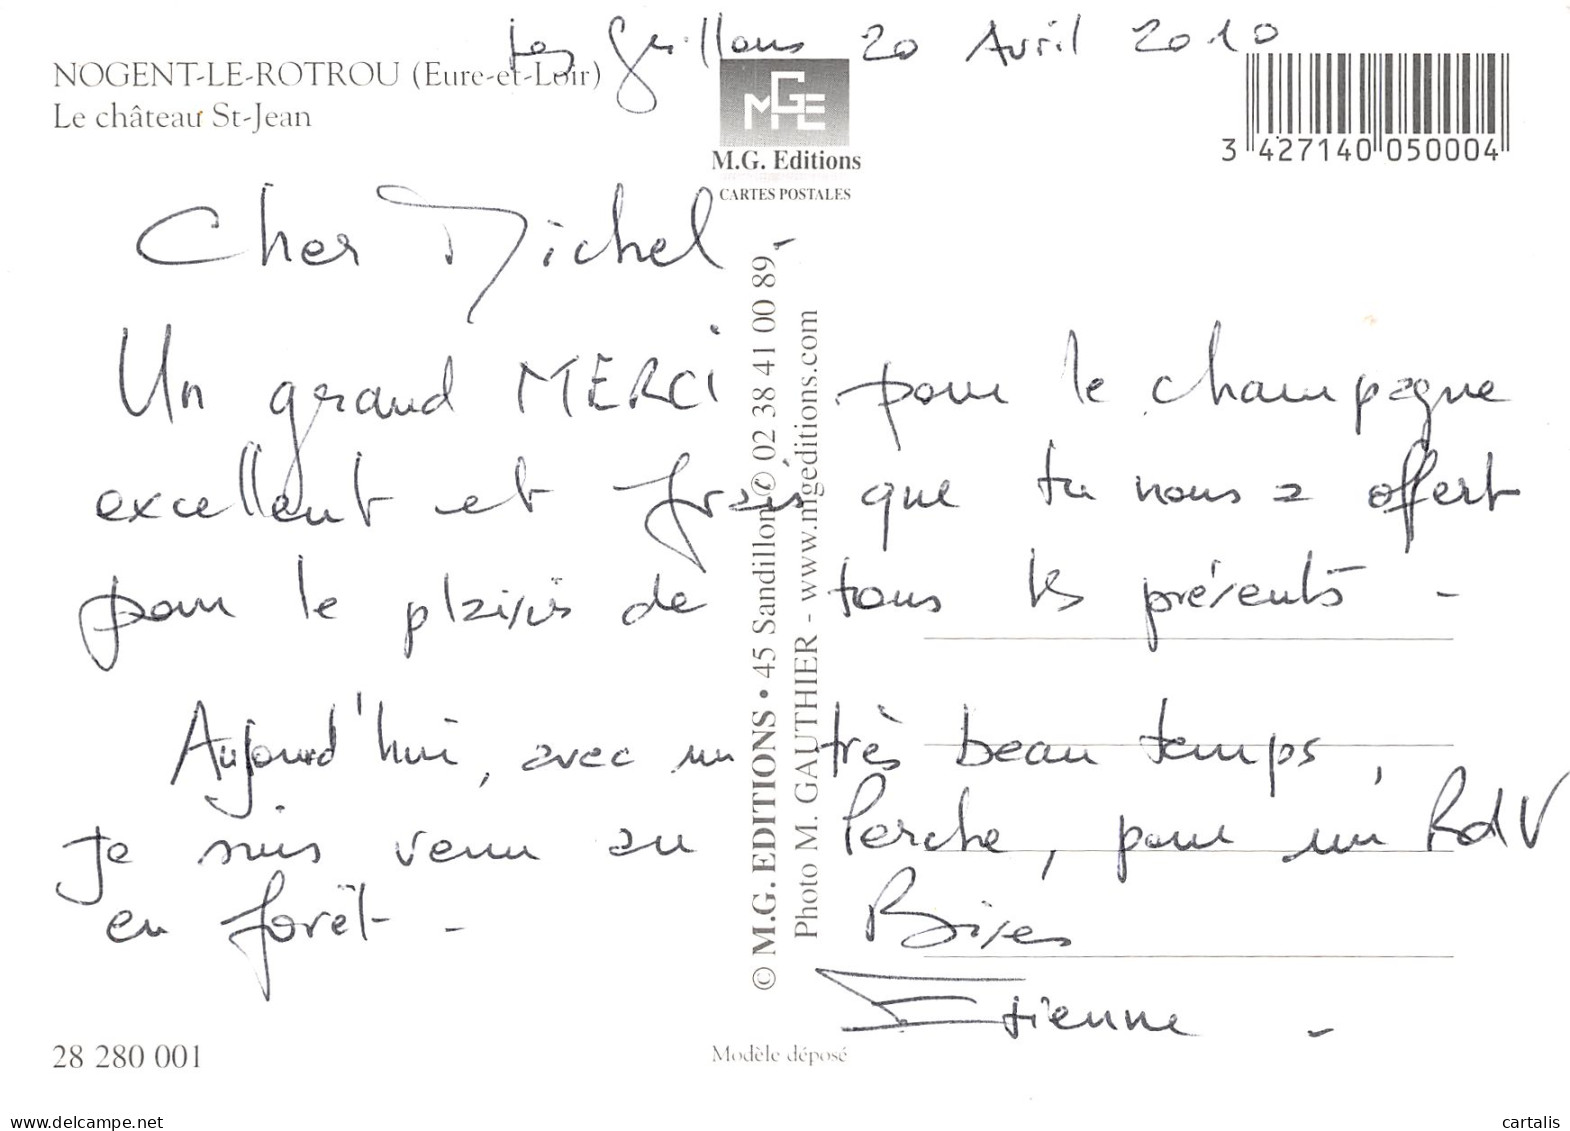 Les 20 Avril 2010
NOGENT-LE-ROTROU (Eure-et-Loir)
Le château St-Jean
MGE
M.G. Editions
CARTES POSTALES
3 427140 050004
Cher Michel -
Un grand MERCI pour le champagne
excellent et frais que tu nous a offert
pour le plaisir de tous les présents -
Aujourd'hui, avec un très beau temps,
je suis venu au Perche, pour un RdV
en forêt -
Bises
Etienne -
© M.G. EDITIONS • 45 Sandillon ✆ 02 38 41 00 89
Photo M. GAUTHIER - www.mgeditions.com
28 280 001
Modèle déposé
www.delcampe.net
cartalis